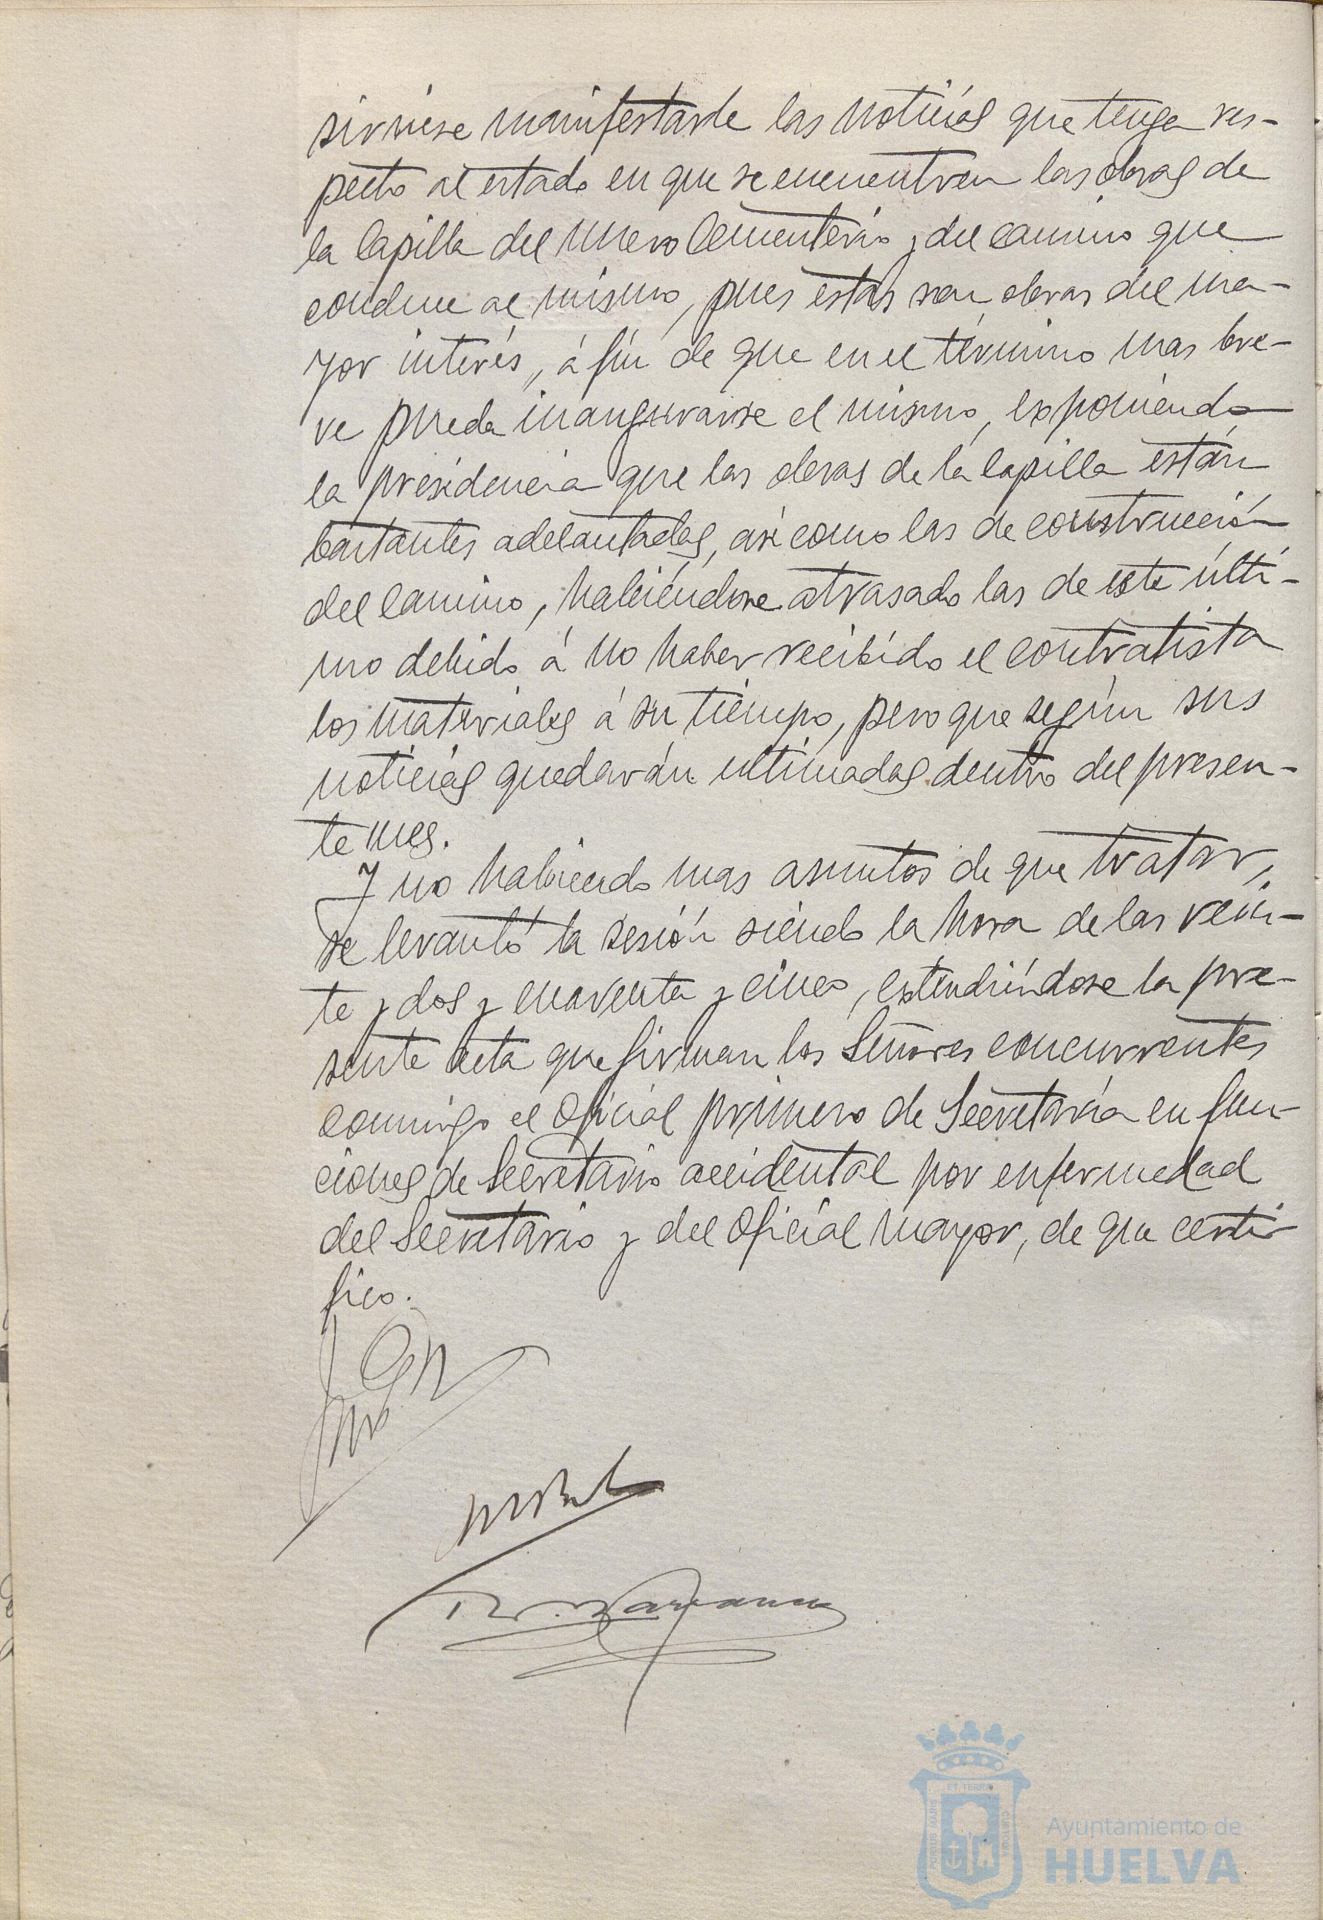 sirviese manifestarle las noticias que tenga res-
pecto al estado en que se encuentren las obras de
la Capilla del nuevo Cementerio y del camino que
conduce al mismo, pues estas son obras del ma-
yor interés, á fin de que en el término mas bre-
ve pueda inaugurarse el mismo, exponiendo
la presidencia que las obras de la Capilla están
bastantes adelantadas, asi como las de construcción
del Camino, habiéndose atrasado las de este últi-
mo debido á no haber recibido el contratista
los materiales á su tiempo, pero que según sus
noticias quedarán ultimadas dentro del presen-
te mes.
Y no habiendo mas asuntos de que tratar,
se levantó la sesión siendo la hora de las vein-
te y dos y cuarenta y cinco, extendiéndose la pre-
sente acta que firman los Señores concurrentes
conmigo el Oficial primero de Secretaría en fun-
ciones de Secretario accidental por enfermedad
del Secretario y del Oficial mayor, de que certi-
fico.
PORTUS MARIS
ET TERRÆ
CUSTODIA
Ayuntamiento de
HUELVA